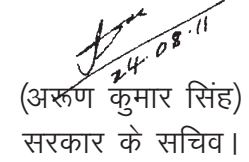 24.08.11
(अरूण कुमार सिंह)
सरकार के सचिव।